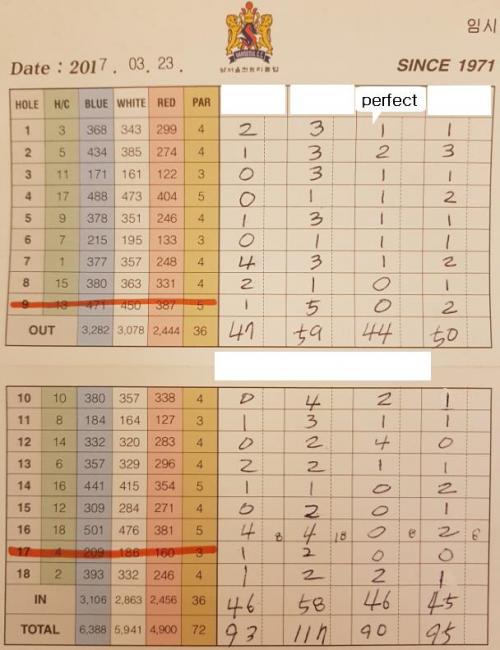 임시
남서울컨트리클럽
Date : 2017. 03. 23. SINCE 1971
HOLE H/C BLUE WHITE RED PAR perfect
1 3 368 343 299 4 2 3 1 1
2 5 434 385 274 4 1 3 2 3
3 11 171 161 122 3 0 3 1 1
4 17 488 473 404 5 0 1 1 2
5 9 378 351 246 4 1 3 1 1
6 7 215 195 133 3 0 1 1 1
7 1 377 357 248 4 4 3 1 2
8 15 380 363 331 4 2 1 0 1
9 13 471 450 387 5 1 5 0 2
OUT 3,282 3,078 2,444 36 47 59 44 50
10 10 380 357 338 4 0 4 2 1
11 8 184 164 127 3 1 3 1 1
12 14 332 320 283 4 0 2 4 0
13 6 357 329 296 4 2 2 1 1
14 16 441 415 354 5 1 1 0 2
15 12 309 284 271 4 0 2 0 1
16 18 501 476 381 5 4 8 4 18 0 8 2 6
17 4 209 186 160 3 1 2 0 0
18 2 393 332 246 4 1 2 2 1
IN 3,106 2,863 2,456 36 46 58 46 45
TOTAL 6,388 5,941 4,900 72 93 117 90 95